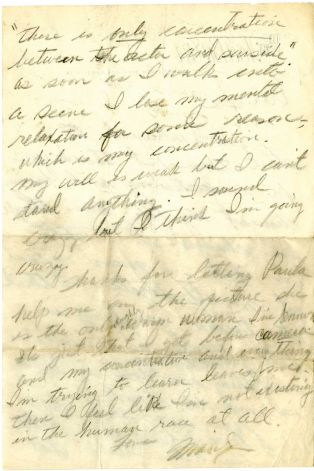 "there is only concentration
between the actor and suicide"
as soon as I walk into
a scene I lose my mental
relaxation for some reason,
which is my concentration.
my will is weak but I can't
stand anything. I sound
crazy but I think I'm going
crazy.
Thanks for letting Paula
help me on the picture she
is the only warm woman I've known
It's just that I get before camera
and my concentration and everything
I'm trying to learn leaves me.
then I feel like I'm not existing
in the human race at all.
Love